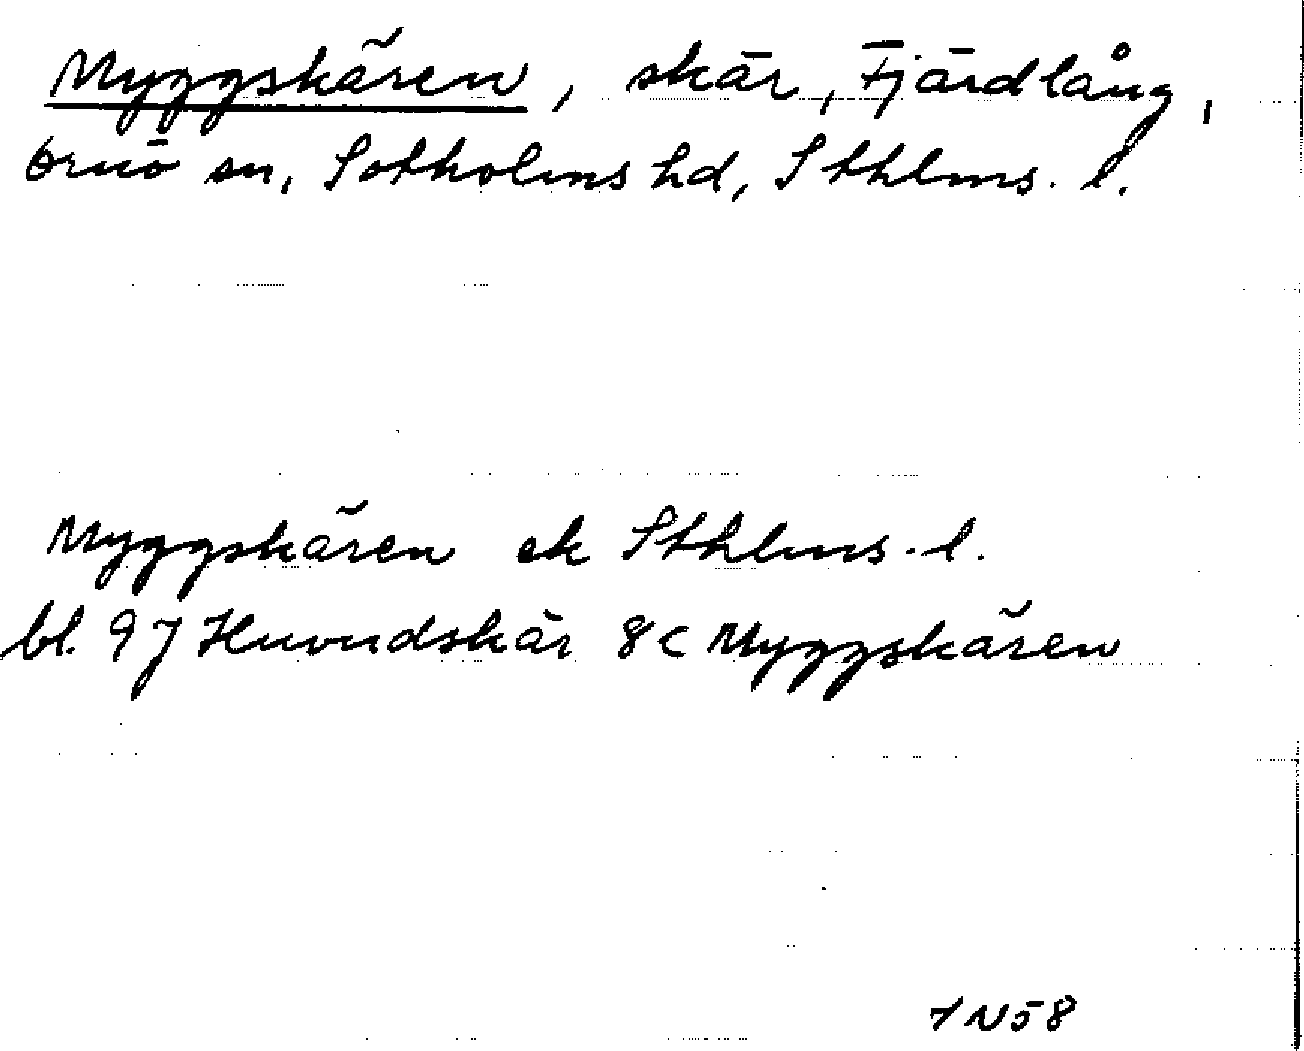 Myggskären, skär, Fjärdlång,
Ornö sn, Sotholms hd, Sthlms. l.
Myggskären ek Sthlms. l.
bl. 97 Huvudskär 8c Myggskären
1N58